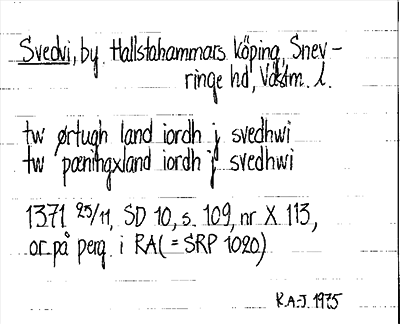 Svedvi, by Hallstahammars köping, Snev-
ringe hd, Västm. l.
tw ørtugh land iordh j svedhwi
tw pæningxland iordh j svedhwi
1371 25/11, SD 10, s. 109, nr X 113,
or. på perg. i RA (= SRP 1020)
R.A-J. 1975